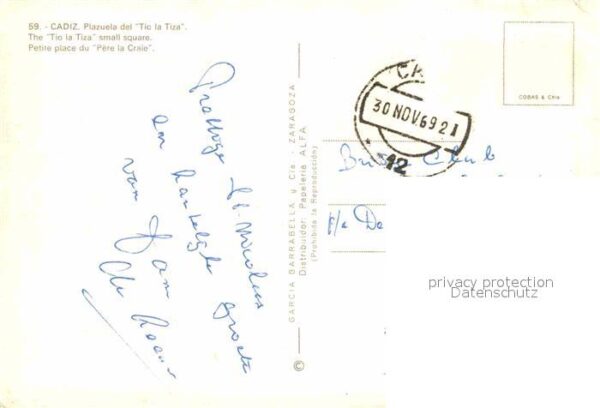 59. - CADIZ. Plazuela del "Tio la Tiza".
The "Tio la Tiza" small square.
Petite place du "Père la Craie".
Prettige St. Nicolaas
en hartelijke groeten
van Jan
de
GARCIA GARRABELLA y Cia. - ZARAGOZA
Distribuidor: Papeleria ALFA
(Prohibida la Reproducción)
©
CA
30 NOV 69 21
12
COBAS & Chia
Club
c/o De
privacy protection
Datenschutz